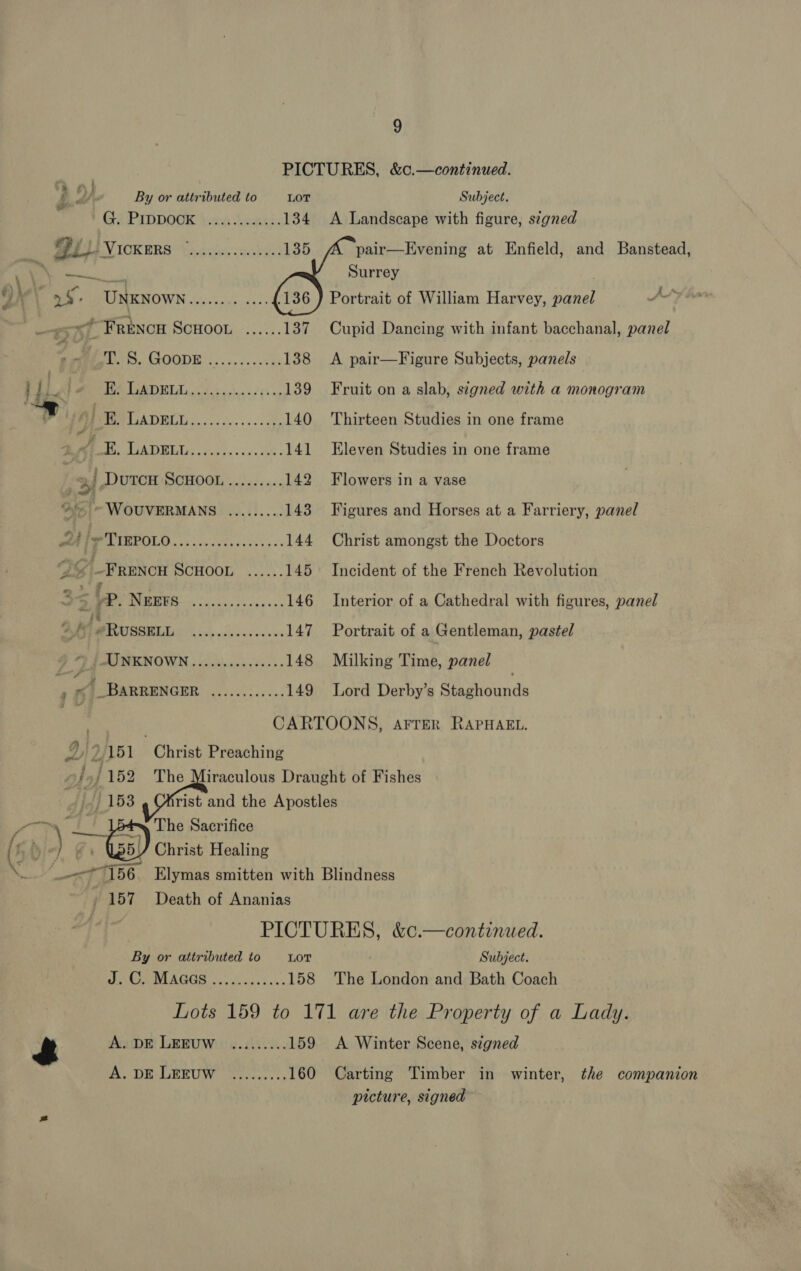 9
PICTURES, &c.—continued.
By or attributed to LOT Subject.
G. PIDDOCK ............134 A Landscape with figure, signed
VICKERS ...............135 A pair—Evening at Enfield, and Banstead,
Surrey
UNKNOWN............136 Portrait of William Harvey, panel
FRENCH SCHOOL ......137 Cupid Dancing with infant bacchanal, panel
T. S. GOODE ............138 A pair—Figure Subjects, panels
E. LADELL...............139 Fruit on a slab, signed with a monogram
E. LADELL...............140 Thirteen Studies in one frame
E. LADELL...............141 Eleven Studies in one frame
DUTCH SCHOOL.........142 Flowers in a vase
WOUVERMANS .........143 Figures and Horses at a Farriery, panel
TIEPOLO..................144 Christ amongst the Doctors
FRENCH SCHOOL ......145 Incident of the French Revolution
P. NEEFS ...............146 Interior of a Cathedral with figures, panel
RUSSELL ...............147 Portrait of a Gentleman, pastel
UNKNOWN...............148 Milking Time, panel
BARRENGER ............149 Lord Derby's Staghounds
CARTOONS, AFTER RAPHAEL.
151 Christ Preaching
152 The Miraculous Draught of Fishes
153 Christ and the Apostles
154 The Sacrifice
155 Christ Healing
156 Elymas smitten with Blindness
157 Death of Ananias
PICTURES, &c.—continued.
By or attributed to LOT Subject.
J. C. MAGGS ............158 The London and Bath Coach
Lots 159 to 171 are the Property of a Lady.
A. DE LEEUW .........159 A Winter Scene, signed
A. DE LEEUW .........160 Carting Timber in winter, the companion
picture, signed